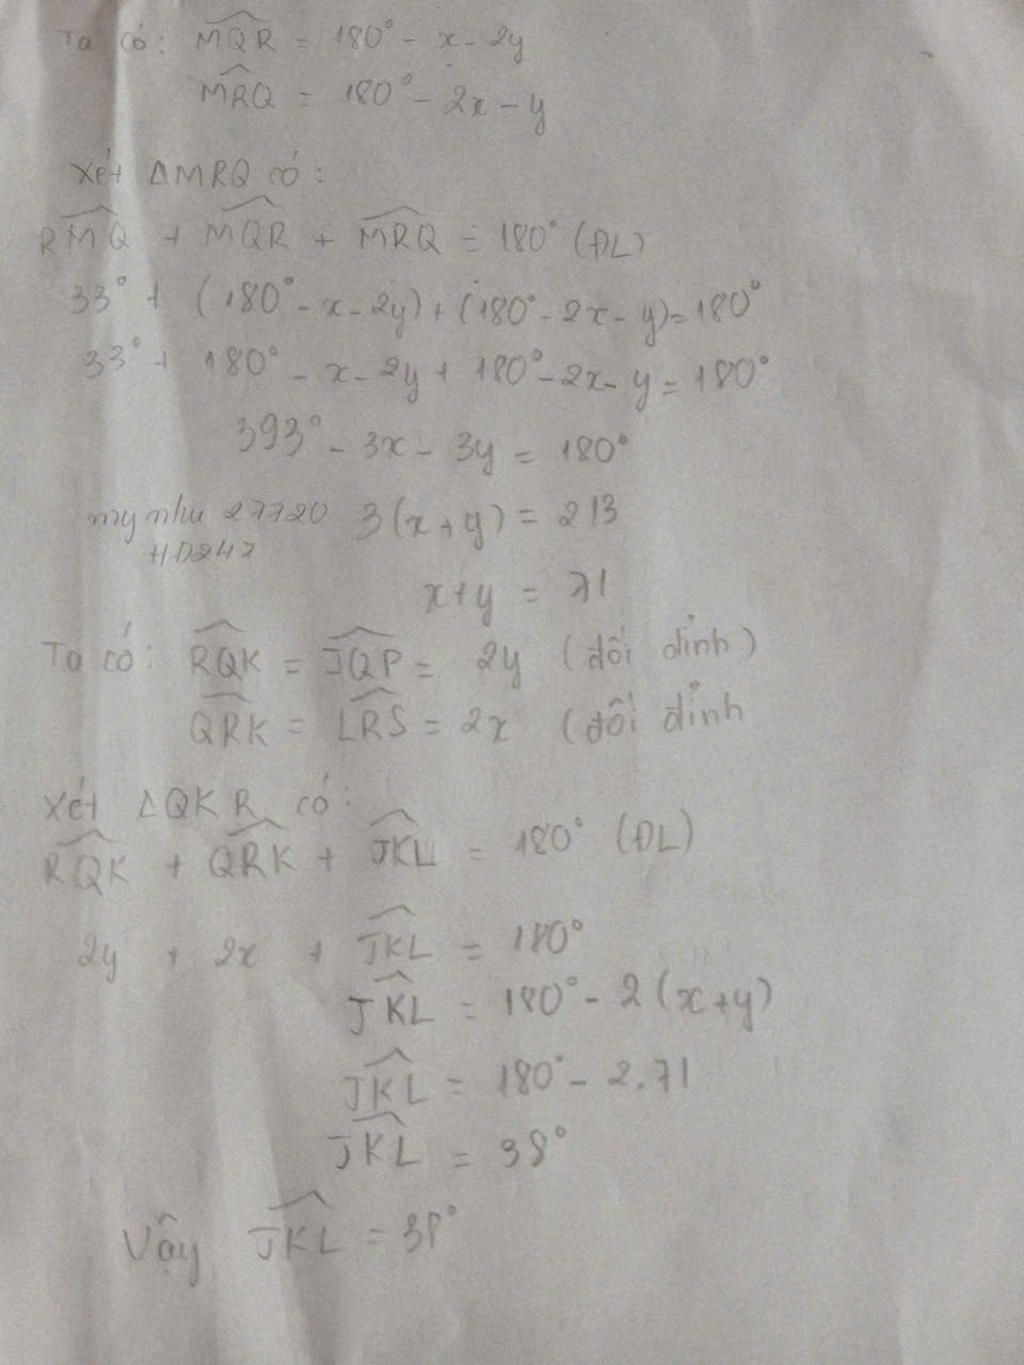 Ta có: MQR = 180° - x - 2y
MRQ = 180° - 2x - y
Xét ΔMRQ có:
RMQ + MQR + MRQ = 180° (ĐL)
33° + (180° - x - 2y) + (180° - 2x - y) = 180°
33° + 180° - x - 2y + 180° - 2x - y = 180°
393° - 3x - 3y = 180°
my nhu 27720 3(x + y) = 213
HD247
x + y = 71
Ta có: RQK = JQP = 2y (đối đỉnh)
QRK = LRS = 2x (đối đỉnh
Xét ΔQKR có:
RQK + QRK + JKL = 180° (ĐL)
2y + 2x + JKL = 180°
JKL = 180° - 2(x + y)
JKL = 180° - 2.71
JKL = 38°
Vậy JKL = 38°